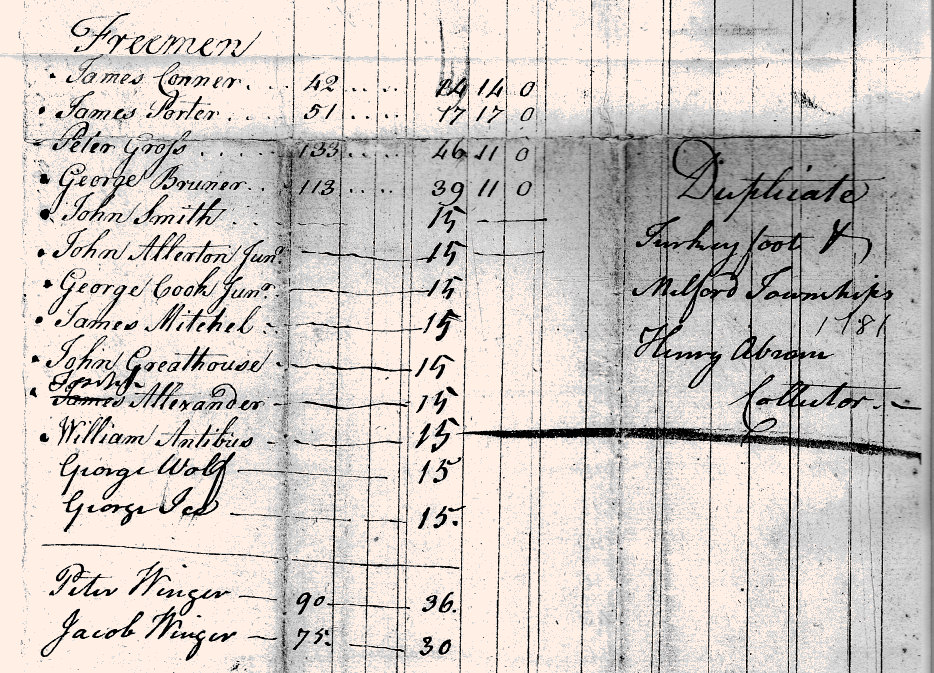 Freemen
James Conner . . 42 . . . . 14 14 0
James Porter . . . 51 . . . . . 17 17 0
Peter Gross . . . . . 133 . . . . 46 11 0
George Bruner . . 113 . . . . 39 11 0
John Smith 15
John Allerton Junr 15
George Cook Junr 15
James Mitchel 15
John Greathouse 15
James Allexander 15
William Antibus 15
George Wolf 15
George Ice 15.
Peter Winger 90 36.
Jacob Winger 75. 30
Duplicate
Turkey foot &
Milford Townships
1781
Henry Abram
Collector.